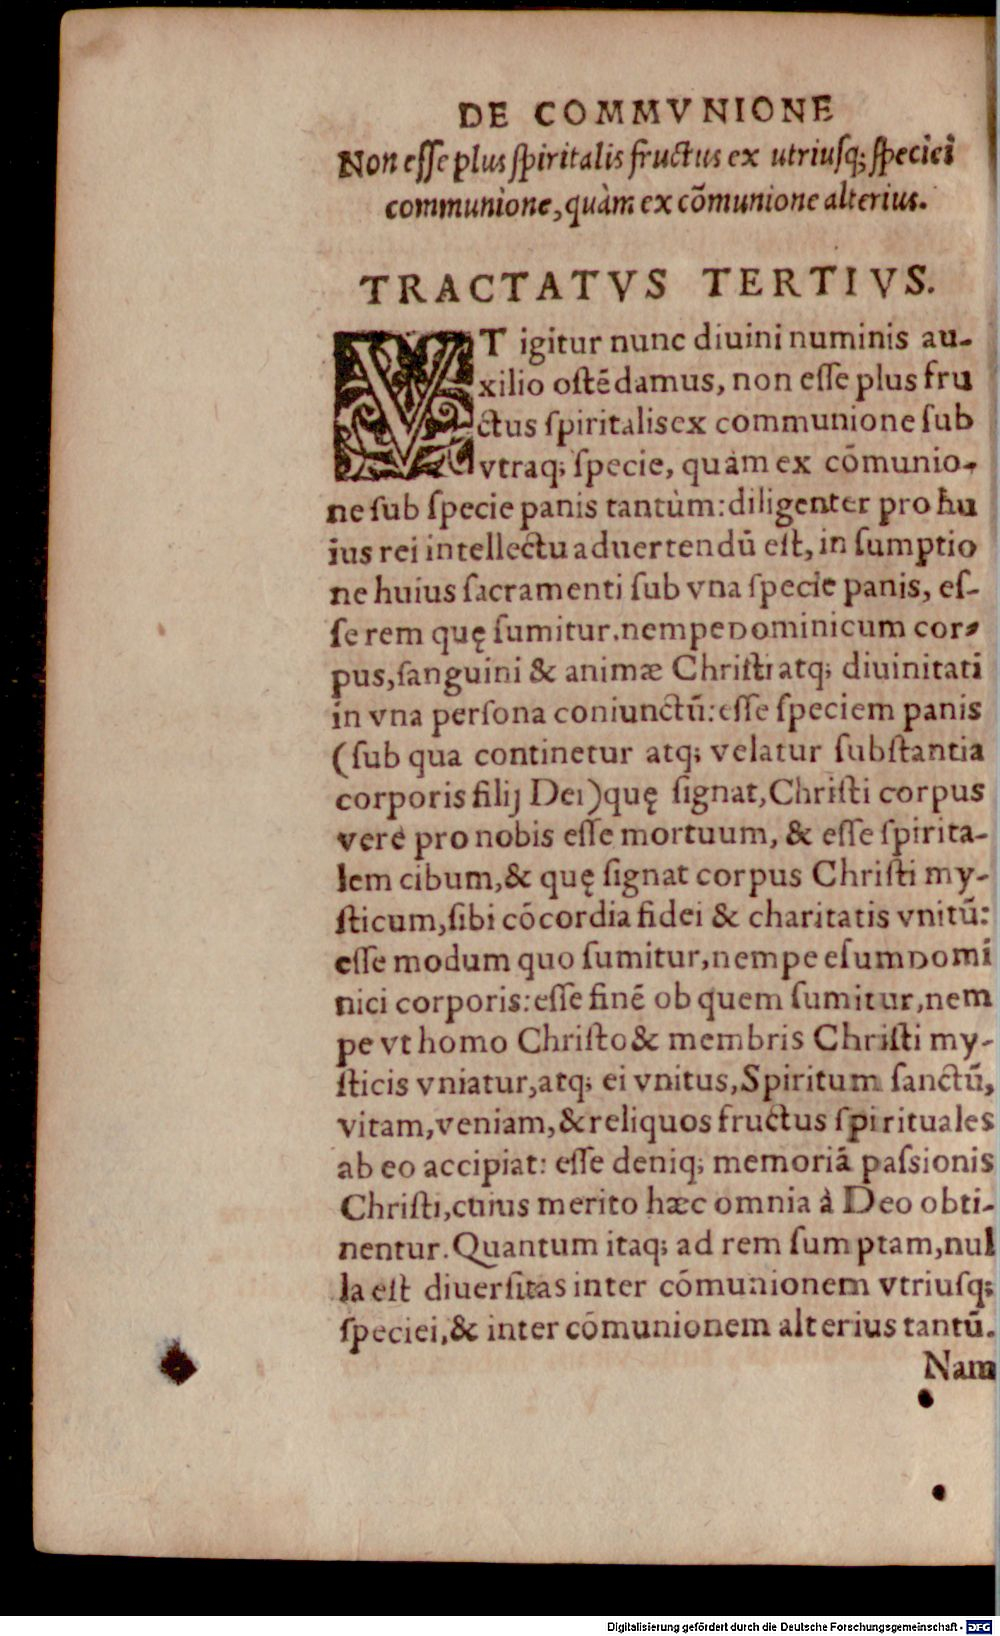 DE COMMVNIONE
Non eſſe plus ſpiritalis fructus ex utriuſq; ſpeciei
communione, quàm ex cõmunione alterius.
TRACTATVS TERTIVS.
VT igitur nunc diuini numinis au-
xilio oſtẽdamus, non eſſe plus fru
ctus ſpiritalis ex communione ſub
vtraq; ſpecie, quàm ex cõmunio-
ne ſub ſpecie panis tantùm: diligenter pro hu
ius rei intellectu aduertendũ eſt, in ſumptio
ne huius ſacramenti ſub vna ſpecie panis, eſ-
ſe rem quę ſumitur, nempe Dominicum cor-
pus, ſanguini & animæ Chriſti atq; diuinitati
in vna perſona coniunctũ: eſſe ſpeciem panis
(ſub qua continetur atq; velatur ſubſtantia
corporis filij Dei) quę ſignat, Chriſti corpus
verè pro nobis eſſe mortuum, & eſſe ſpirita-
lem cibum, & quę ſignat corpus Chriſti my-
ſticum, ſibi cõcordia fidei & charitatis vnitũ:
eſſe modum quo ſumitur, nempe eſum Domi
nici corporis: eſſe finẽ ob quem ſumitur, nem
pe vt homo Chriſto & membris Chriſti my-
ſticis vniatur, atq; ei vnitus, Spiritum ſanctũ,
vitam, veniam, & reliquos fructus ſpirituales
ab eo accipiat: eſſe deniq; memoriã paſsionis
Chriſti, cuius merito hæc omnia à Deo obti-
nentur. Quantum itaq; ad rem ſumptam, nul
la eſt diuerſitas inter cõmunionem vtriuſq;
ſpeciei, & inter cõmunionem alterius tantũ.
Nam
Digitalisierung gefördert durch die Deutsche Forschungsgemeinschaft - DFG